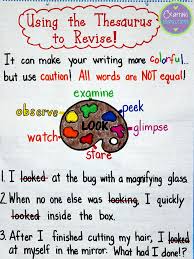 Using the Thesaurus
to Revise!
It can make your writing more colorful..
but use caution! All words are NOT equal!
examine
observe
peek
Look
glimpse
watch
stare
1. I looked at the bug with a magnifying glass.
2. When no one was looking, I quickly
looked inside the box.
3. After I finished cutting my hair, I looked
at myself in the mirror. What had I done!?